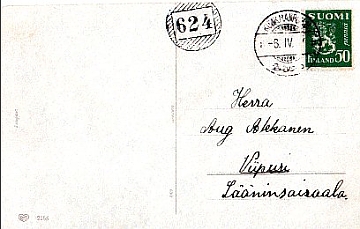 624
SUOMI
-6. IV.
FINLAND 50
Herra
Aug Akkanen
Viipuri
Lääninsairaala.